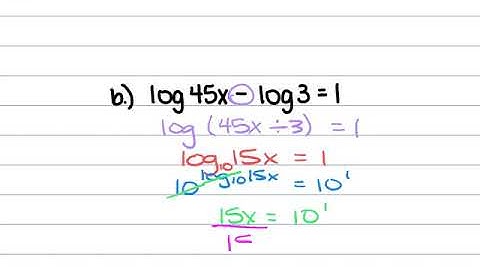 b.) log 45x - log 3 = 1
log (45x ÷ 3) = 1
log₁₀15x = 1
10^log₁₀15x = 10¹
15x = 10¹
15